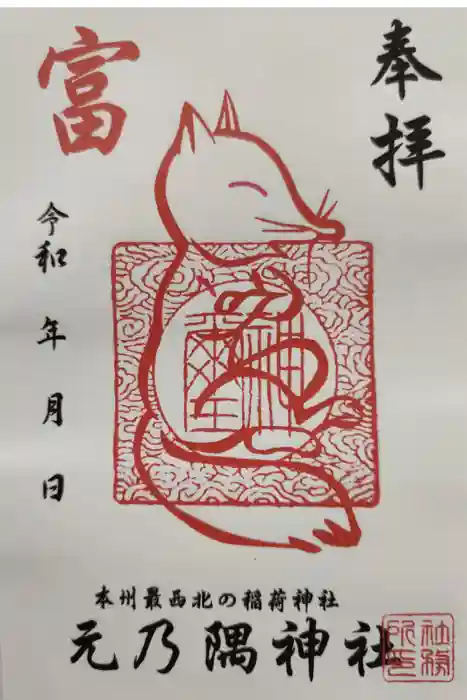 奉拝
富
令和 年 月 日
本州最西北の稲荷神社
元乃隅神社
社務所印